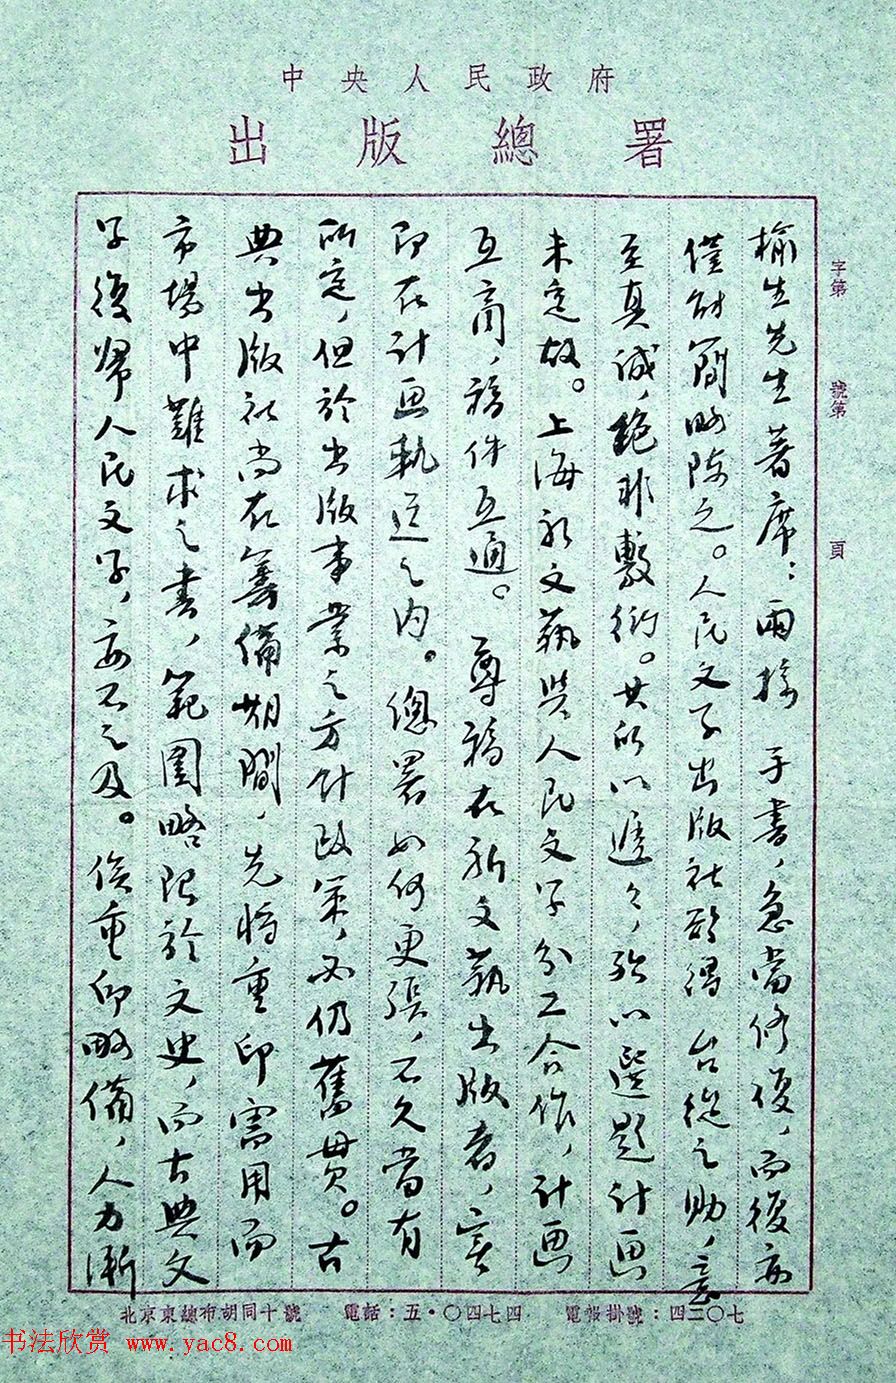 中央人民政府
出版總署
字第 號第 頁
榆生先生著席：兩接 手書，急當修復，而復而
僅能簡略陳之。人民文學出版社欲得 台從之助，意
至真誠，絕非敷衍。其所以遲遲，殆以選題計畫
未定故。上海新文藝與人民文學分工合作，計畫
互商，稿件互通。尊稿在新文藝出版者，實
即在計畫軌道之内。總署如何更張，不久當有
所定，但於出版事業之方針政策，必仍舊貫。古
典出版社尚在籌備期間，先將重印需用而
市場中難求之書，範圍略限於文史，而古典文
學復歸人民文學，妄不之及。俟重印略備，人力漸
北京東總布胡同十號 電話：五·〇四七四 電報掛號：四二〇七
书法欣赏 www.yac8.com